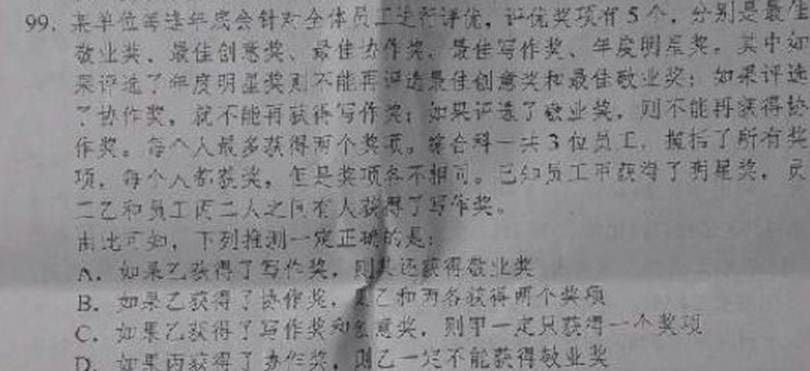 99. 某单位每逢年底会针对全体员工进行评优，评优奖项有5个，分别是最佳
敬业奖、最佳创意奖、最佳协作奖、最佳写作奖、年度明星奖。其中如
果评选了年度明星奖则不能再评选最佳创意奖和最佳敬业奖；如果评选
了协作奖，就不能再获得写作奖；如果评选了敬业奖，则不能再获得协
作奖。每个人最多获得两个奖项。综合科一共3位员工，揽括了所有奖
项，每个人都获奖，但是奖项各不相同。已知员工甲获得了明星奖，员
工乙和员工丙二人之间有人获得了写作奖。
由此可知，下列推测一定正确的是：
A. 如果乙获得了写作奖，则其还获得敬业奖
B. 如果乙获得了协作奖，则乙和丙各获得两个奖项
C. 如果乙获得了写作奖和创意奖，则甲一定只获得一个奖项
D. 如果丙获得了协作奖，则乙一定不能获得敬业奖